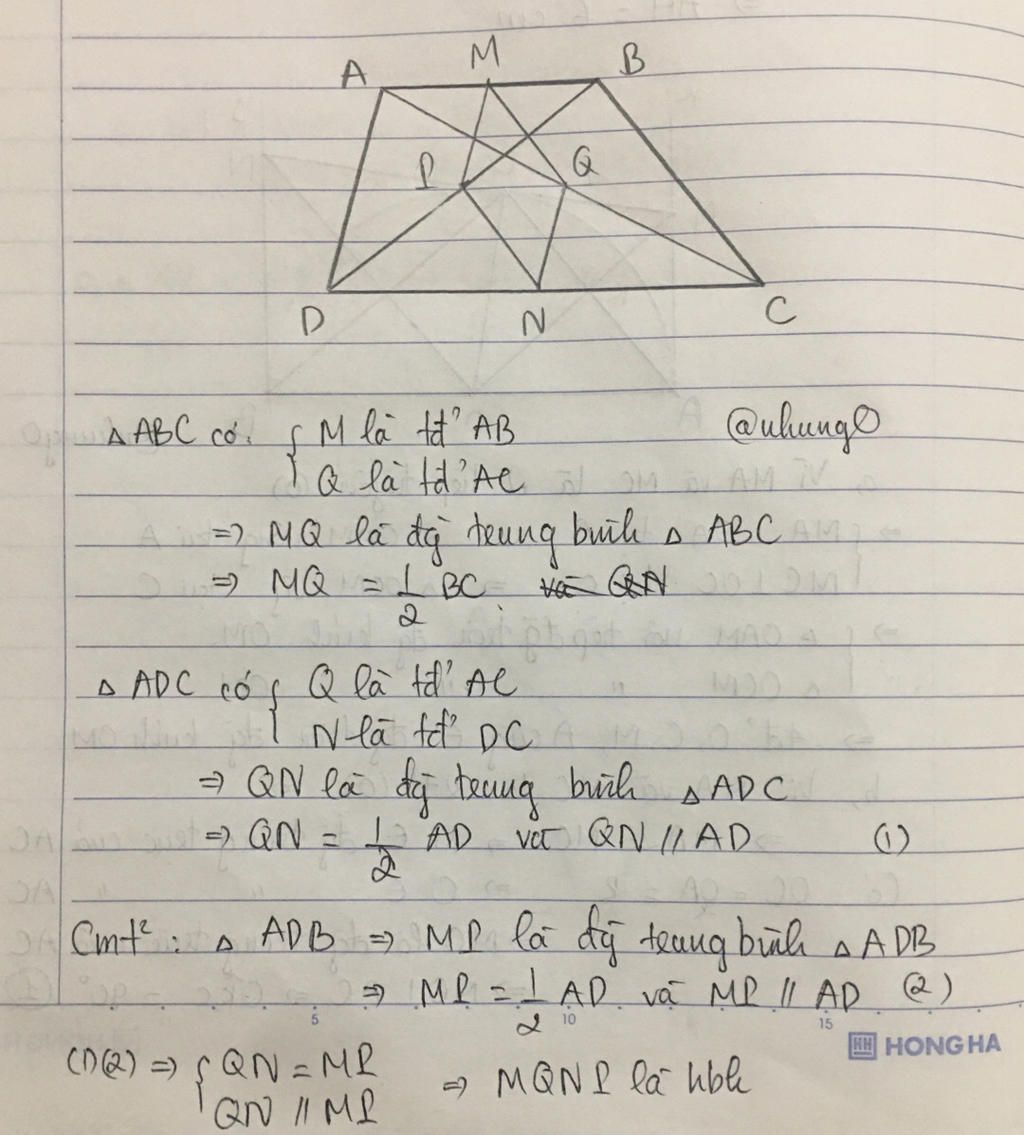 A M B
P Q
D N C
△ ABC có: { M là tđ' AB @nhung0
Q là tđ' AC
=> MQ là đg̃ trung bình △ ABC
=> MQ = 1/2 BC.
△ ADC có { Q là tđ' AC
N là tđ' DC
=> QN là đg̃ trung bình △ ADC
=> QN = 1/2 AD và QN // AD (1)
Cmt²: △ ADB => MP là đg̃ trung bình △ ADB
=> MP = 1/2 AD và MP // AD (2)
5 10 15
HH HONG HA
(1)(2) => { QN = MP => MQNP là hbh
QN // MP